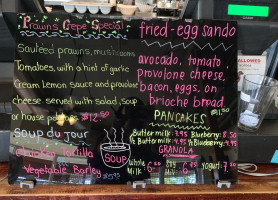 Prawns Crepe Special
Sautéed prawns, mushrooms
Tomatoes, with a hint of garlic
Cream Lemon sauce and provolone
cheese. served with Salad, soup
or house potatoes $12.50
Soup du jour
chicken Tortilla
Vegetable Barley
SOUP
$5.95
fried-egg sando
avocado, tomato
provolone cheese,
bacon, eggs, on
brioche bread
$11.50
PANCAKES
Buttermilk: 7.95 Blueberry: 8.50
½ Buttermilk 4.95 ½ Blueberry 4.95
GRANOLA
whole Milk: 6.50
Soy Milk 6.50
yogurt: 7.50